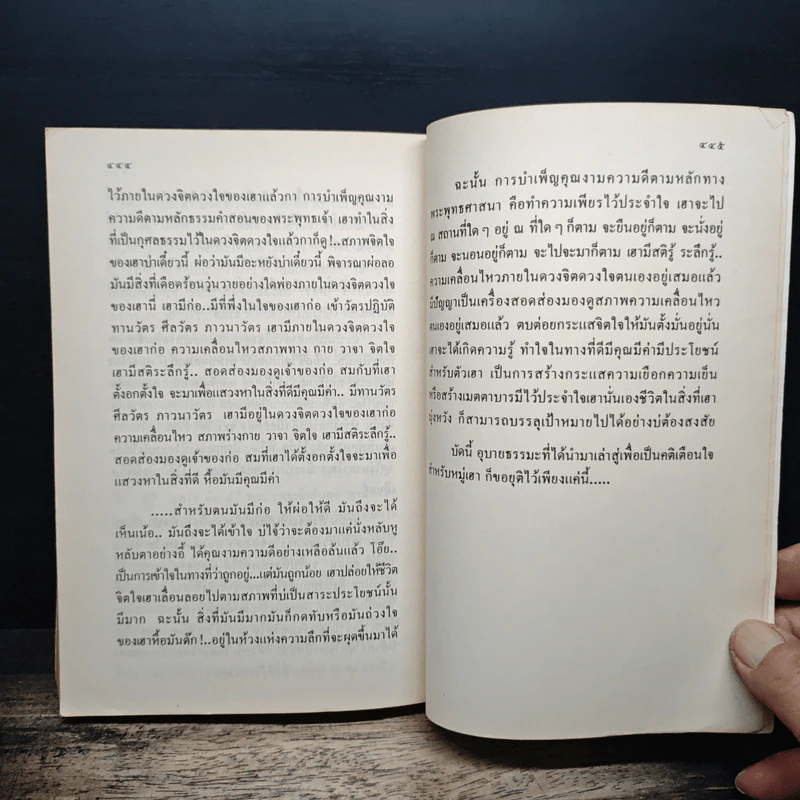 ๔๔๔
ไว้ภายในดวงจิตดวงใจของเฮาแล้วกา การบำเพ็ญคุณงาม
ความดีตามหลักธรรมคำสอนของพระพุทธเจ้า เฮาทำในสิ่ง
ที่เป็นกุศลธรรมไว้ในดวงจิตดวงใจแล้วกาก็ดู!..สภาพจิตใจ
ของเฮาบ่าเดี๋ยวนี้ ผ่อว่ามันมีอะหยังบ่าเดี๋ยวนี้ พิจารณาผ่อลอ
มันมีสิ่งที่เดือดร้อนวุ่นวายอย่างใดพ่องภายในดวงจิตดวงใจ
ของเฮานี่ เฮามีก่อ..มีที่พึ่งในใจของเฮาก่อ เข้าวัตรปฏิบัติ
ทานวัตร ศีลวัตร ภาวนาวัตร เฮามีภายในดวงจิตดวงใจ
ของเฮาก่อ ความเคลื่อนไหวสภาพทาง กาย วาจา จิตใจ
เฮามีสติระลึกรู้.. สอดส่องมองดูเจ้าของก่อ สมกับที่เฮา
ตั้งอกตั้งใจ จะมาเพื่อแสวงหาในสิ่งที่ดีมีคุณมีค่า.. มีทานวัตร
ศีลวัตร ภาวนาวัตร เฮามีอยู่ในดวงจิตดวงใจของเฮาก่อ
ความเคลื่อนไหว สภาพร่างกาย วาจา จิตใจ เฮามีสติระลึกรู้..
สอดส่องมองดูเจ้าของก่อ สมที่เฮาได้ตั้งอกตั้งใจจะมาเพื่อ
แสวงหาในสิ่งที่ดี หื้อมันมีคุณมีค่า
.....สำหรับตนมันมีก่อ ให้ผ่อให้ดี มันถึงจะได้
เห็นเน้อ.. มันถึงจะได้เข้าใจ บ่ใจ้ว่าจะต้องมาแค่นั่งหลับหู
หลับตาอย่างอี้ ได้คุณงามความดีอย่างเหลือล้นแล้ว โอ๊ย..
เป็นการเข้าใจในทางที่ว่าถูกอยู่...แต่มันถูกน้อย เฮาปล่อยให้ชีวิต
จิตใจเฮาเลื่อนลอยไปตามสภาพที่บ่เป็นสาระประโยชน์นั้น
มีมาก ฉะนั้น สิ่งที่มันมีมากมันก็กดทับหรือมันถ่วงใจ
ของเฮาหื้อมันตึก!..อยู่ในห้วงแห่งความลึกที่จะผุดขึ้นมาได้
๔๔๕
ฉะนั้น การบำเพ็ญคุณงามความดีตามหลักทาง
พระพุทธศาสนา คือทำความเพียรไว้ประจำใจ เฮาจะไป
ณ สถานที่ใด ๆ อยู่ ณ ที่ใด ๆ ก็ตาม จะยืนอยู่ก็ตาม จะนั่งอยู่
ก็ตาม จะนอนอยู่ก็ตาม จะไปจะมาก็ตาม เฮามีสติรู้ ระลึกรู้..
ความเคลื่อนไหวภายในดวงจิตดวงใจตนเองอยู่เสมอแล้ว
มีปัญญาเป็นเครื่องสอดส่องมองดูสภาพความเคลื่อนไหว
ตนเองอยู่เสมอแล้ว ตบต่อยกระแสจิตใจให้มันตั้งมั่นอยู่นั่น
เฮาจะได้เกิดความรู้ ทำใจในทางที่ดีมีคุณมีค่ามีประโยชน์
สำหรับตัวเฮา เป็นการสร้างกระแสความเยือกความเย็น
หรือสร้างเมตตาบารมีไว้ประจำใจเฮานั่นเองชีวิตในสิ่งที่เฮา
มุ่งหวัง ก็สามารถบรรลุเป้าหมายไปได้อย่างบ่ต้องสงสัย
บัดนี้ อุบายธรรมะที่ได้นำมาเล่าสู่เพื่อเป็นคติเตือนใจ
สำหรับหมู่เฮา ก็ขอยุติไว้เพียงแค่นี้.....